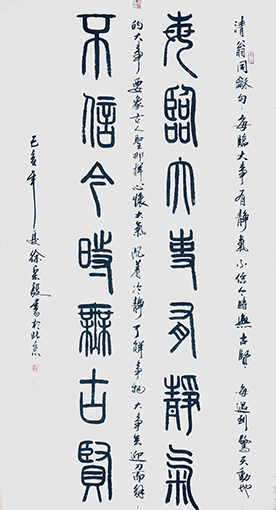 清翁同龢句每臨大事有靜氣不信今時無古賢每遇到驚天動地
每臨大事有靜氣
的大事要象古人聖那样心懷大氣沉着冷靜了解事物大事迎刃而解
不信今時無古賢
己亥年夏徐書於北京